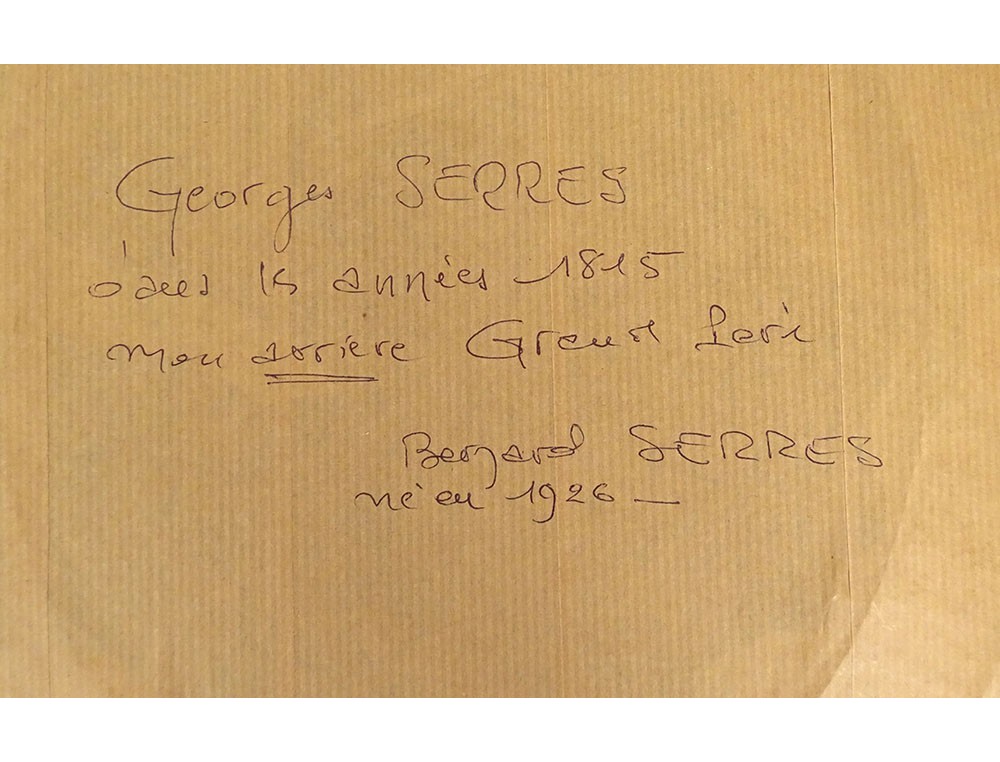 Georges SERRES
dans les années 1815
mon arrière Grand Père
Bernard SERRES
né en 1926 —